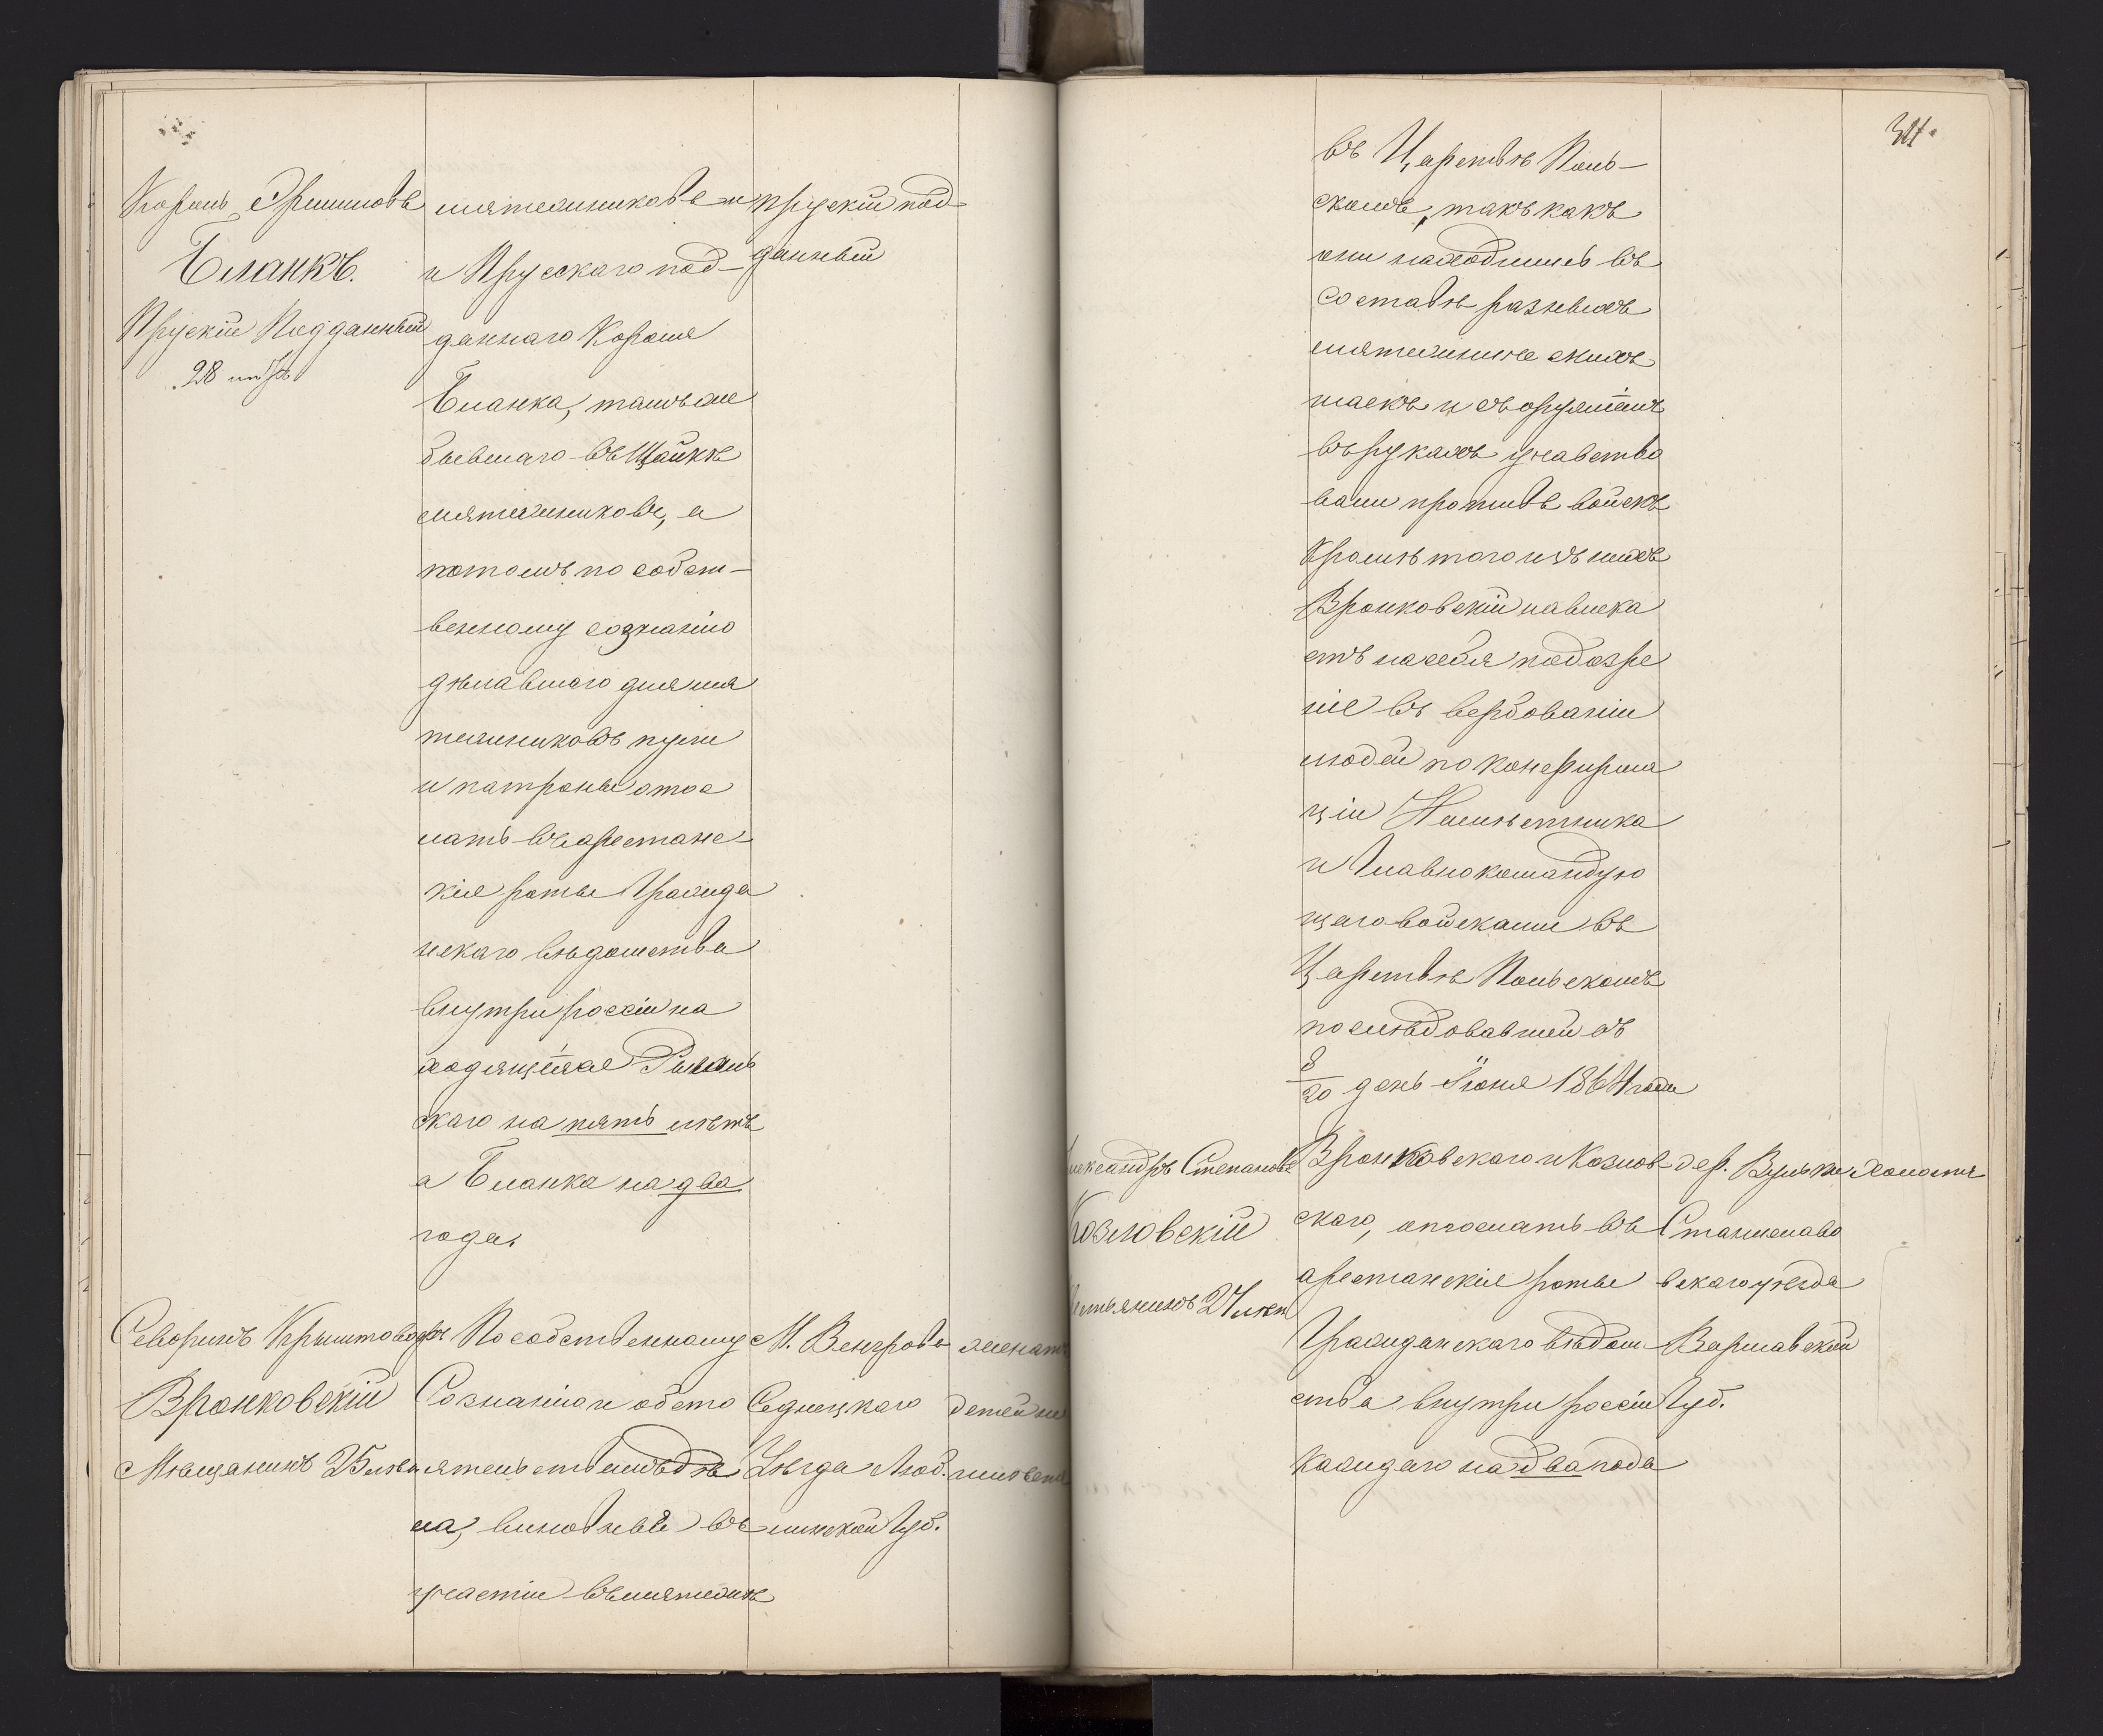 Король Эрминовъ
Бланкъ.
Прускій Подданный
28 лѣтъ
мятежниковъ и
и Прусскаго под-
даннаго Короля
Бланка, также
бывшаго въ Шайкѣ
мятежниковъ, а
потомъ по собст-
венному сознанію
дѣлавшаго для мя
тежниковъ пули
и патроны отос
лать въ арестанс-
кія роты Гражда
нскаго вѣдомства
внутри россіи на
ходящіяся
скаго на пять лѣтъ
а Бланка на два
года.
прускій под-
данный
Северинъ Криштофовъ
Вронковскій
Мѣщанинъ 25 лѣтъ
По собственному
Сознанію и обсто
ятельствамъ дѣ
ла, виновные въ
участіи въ мятежѣ
М. Венгрова
Седлецкаго
Уѣзда Люб-
линской Губ.
женатъ
детей не
34.
въ Царствѣ Поль-
скомъ, такъ какъ
они находились въ
составѣ разныхъ
мятежническихъ
шаекъ и съ оружіемъ
въ рукахъ учавство
вали противъ войскъ
Кромѣ того изъ нихъ
Вронковскій навлека
етъ на себя подозре
ніе въ вербованіи
людей по конфирма
ціи Намѣстника
и Главнокомандую
щаго войсками въ
Царствѣ Польскомъ
послѣдовавшей въ
8/20 день Іюня 1864 года
Вронковскаго и Козлов-
скаго, отослать въ
арестанскія роты
Гражданскаго вѣдом
ства внутри россіи
каждаго на два года
Александръ Степановъ
Козловскій
Крестьянинъ 27 лѣтъ
дер. Вулька
Станиславо
вскаго уѣзда
Варшавской
Губ.
Холостъ